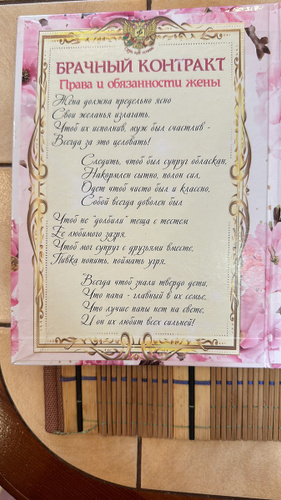 БРАЧНЫЙ КОНТРАКТ
Права и обязанности жены
Жена должна предельно ясно
Свои желанья излагать,
Чтоб их исполнив, муж был счастлив -
Всегда за это целовать!
Следить, чтоб был супруг обласкан,
Накормлен сытно, полон сил,
Одет чтоб чисто был и классно,
Собой всегда доволен был.
Чтоб не "долбили" теща с тестем
Ее любимого зазря,
Чтоб мог супруг с друзьями вместе,
Пивка попить, поймать угря.
Всегда чтоб знали твердо дети,
Что папа - главный в их семье,
Что лучше папы нет на свете,
И он их любит всех сильней!